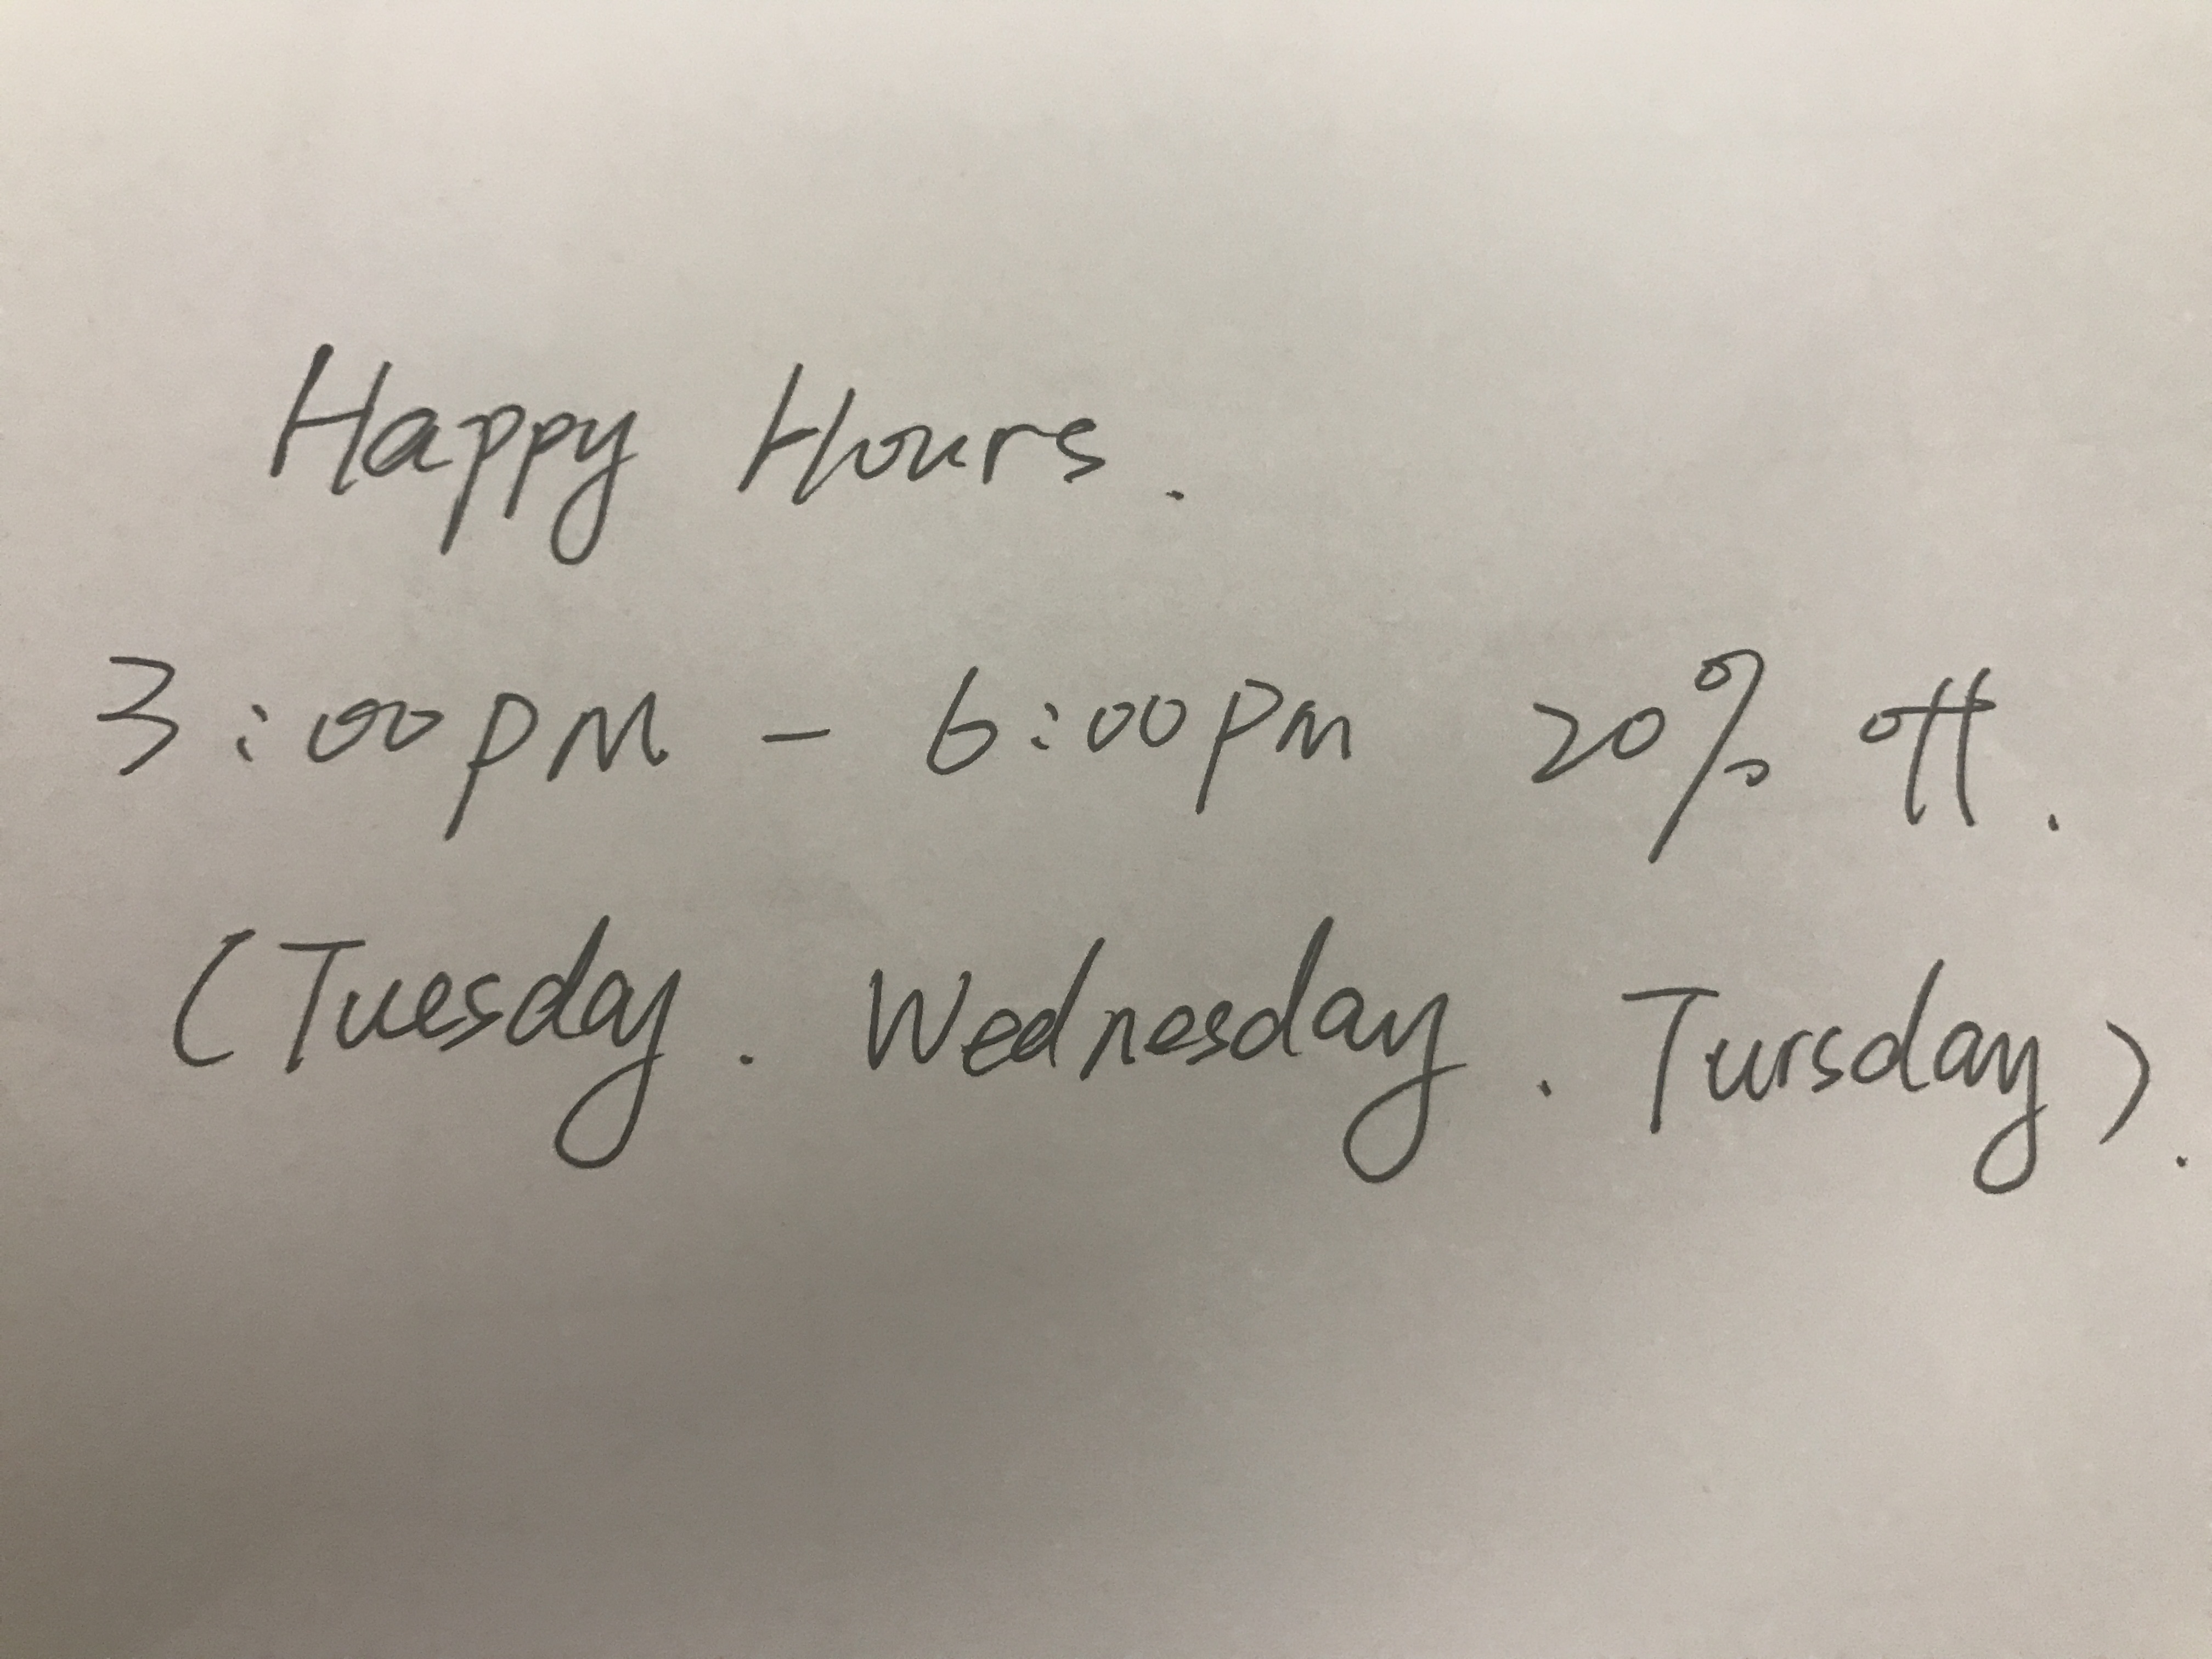 Happy Hours.
3:00PM - 6:00PM 20% off.
(Tuesday. Wednesday. Tursday).